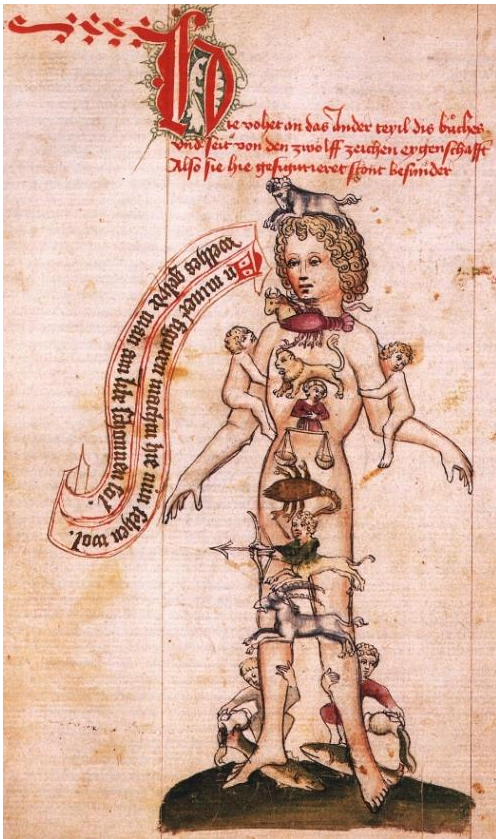 Hie vohet an das Ander teyil dis bůches
vnd seit von den zwölff zeichen eygenschafft
Also sie hie gefigurieret stont besunder
In miner figuren machtu hie nun sehen wol.
welhes gelide man am libe schonnen sol.